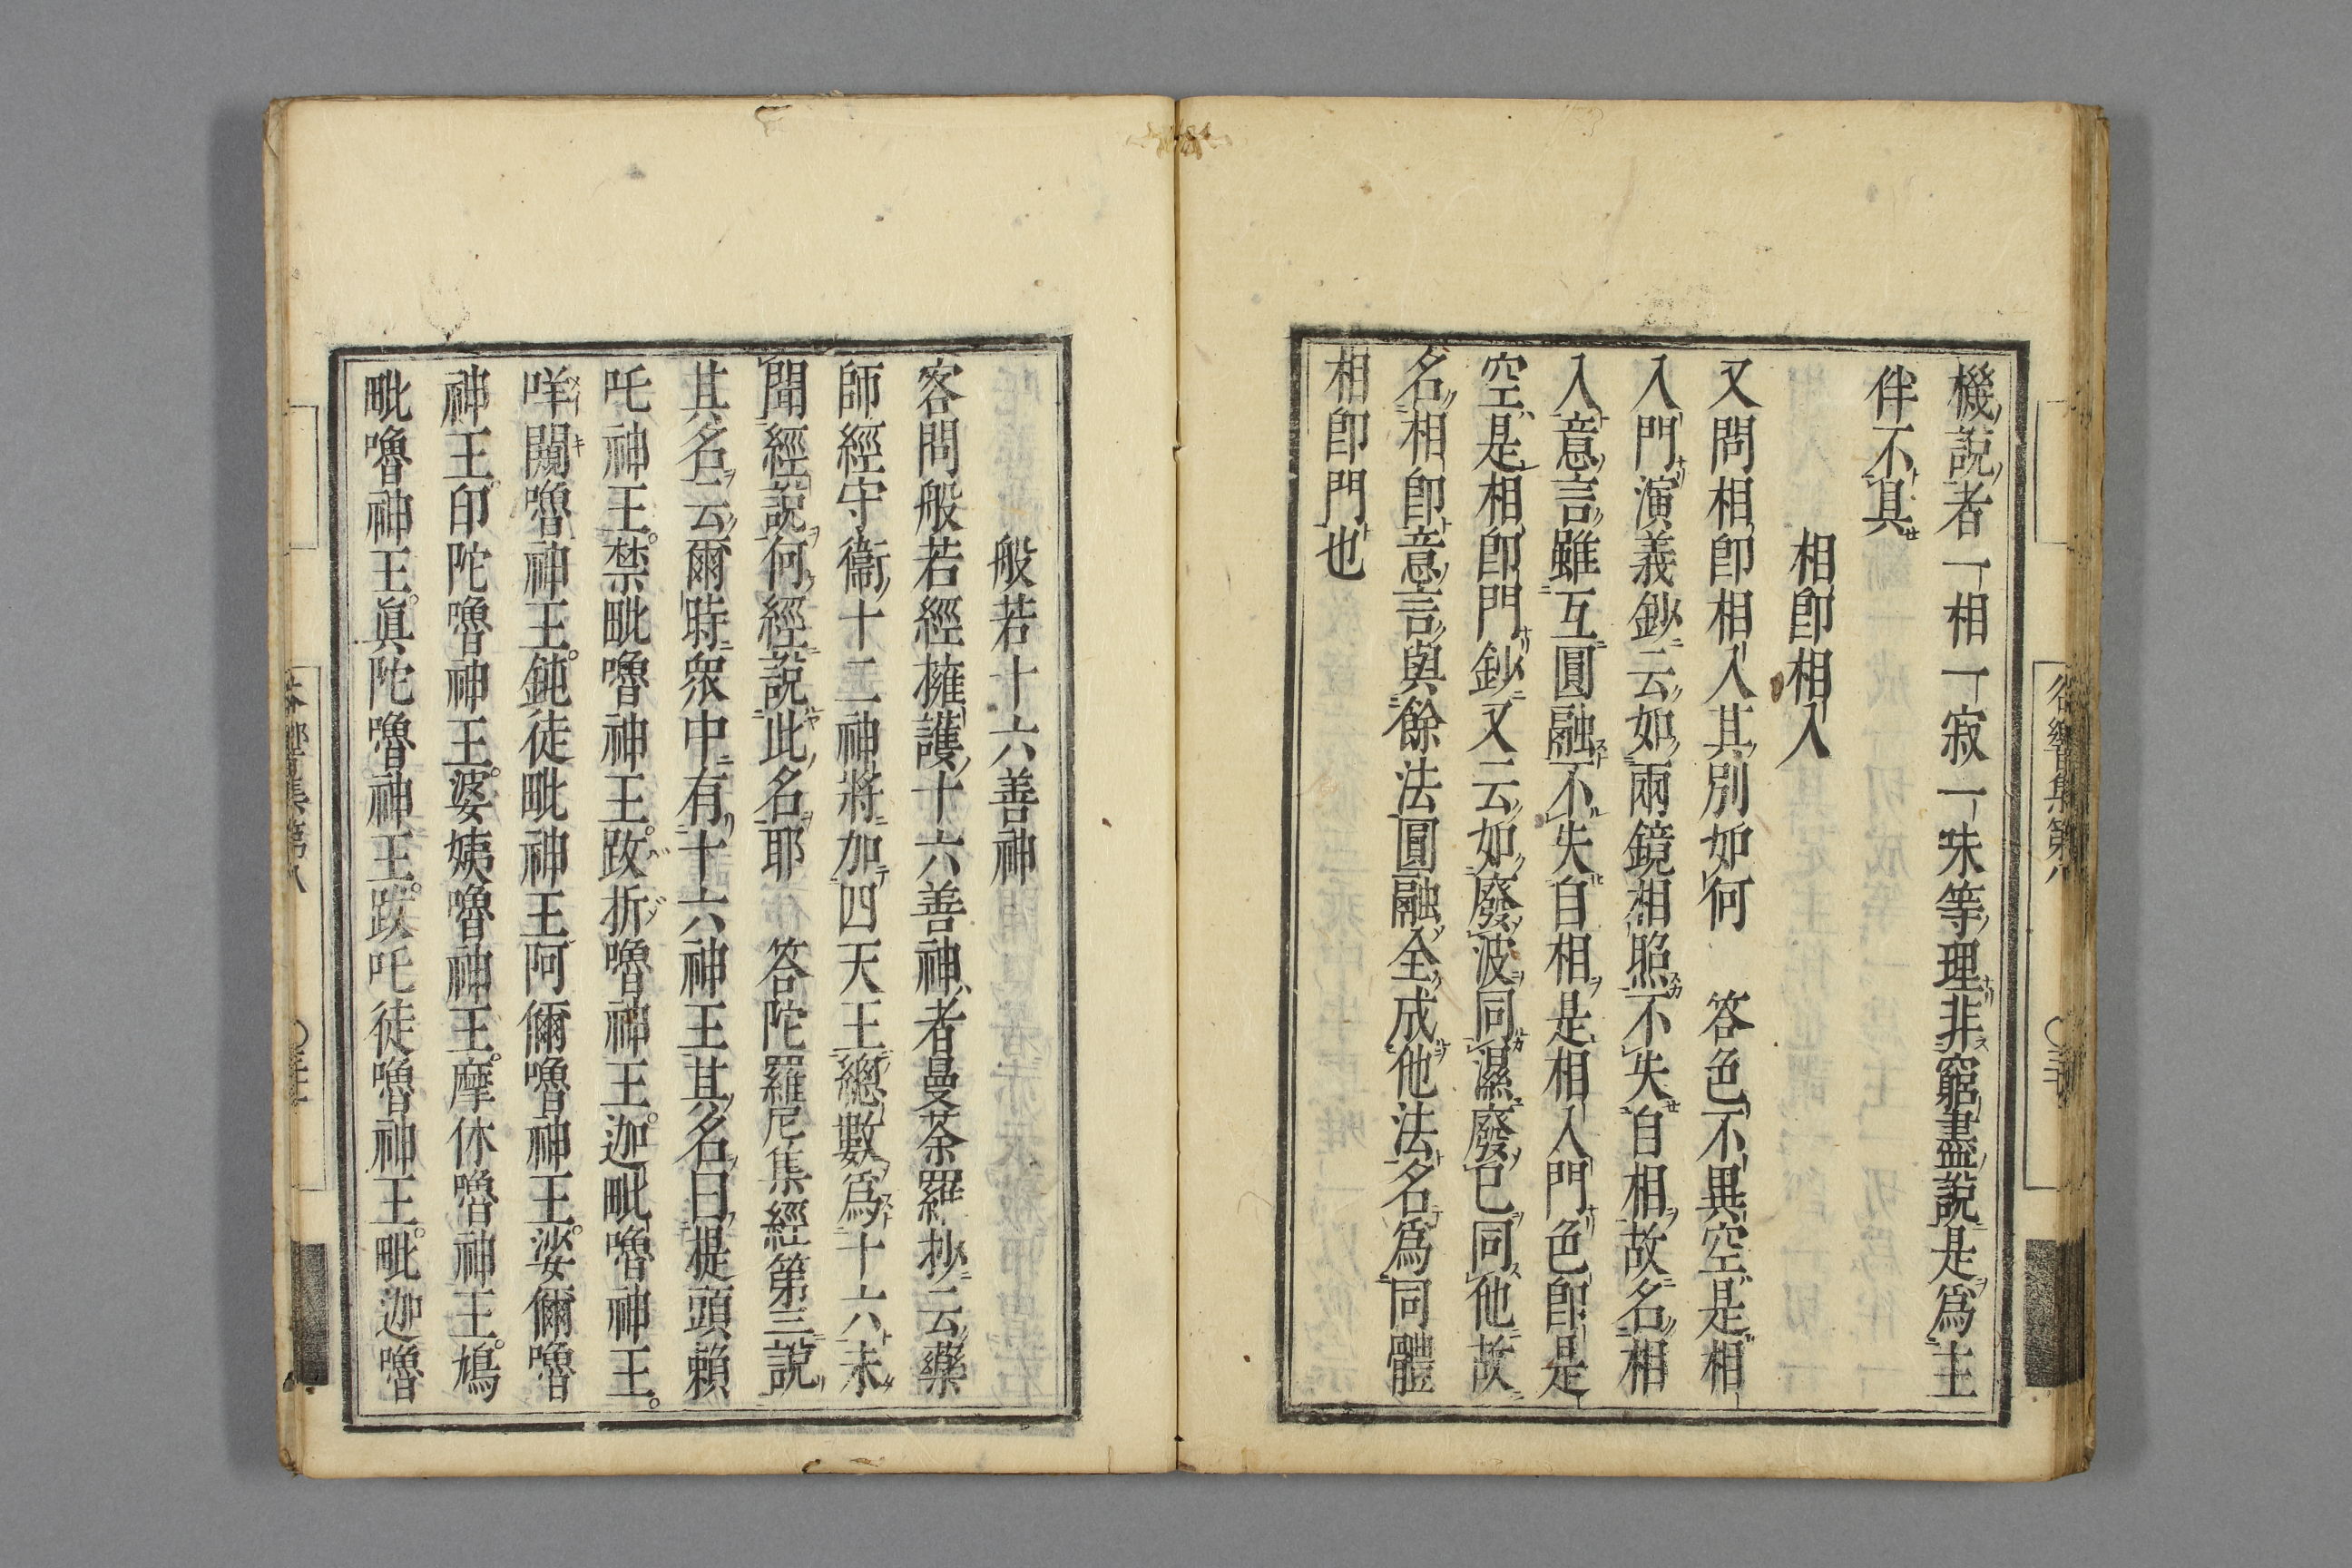 機說者一相一寂一味等理非窮盡說是爲主
伴不具
相卽相入
又問相卽相入其別如何　答色不異空是相
入門演義鈔云如兩鏡相照不失自相故名相
入意言雖互圓融不失自相是相入門色卽是
空是相卽門鈔又云如廢波同濕廢已同他故
名相卽意言與餘法圓融全成他法名爲同體
相卽門也
谷響集第八
般若十六善神
客問般若經擁護十六善神者曼荼羅抄云藥
師經守衞十二神將加四天王總數爲十六未
聞經說何經說此名耶　答陀羅尼集經第三說
其名云爾時衆中有十六神王其名曰提頭賴
吒神王。禁毗嚕神王。跋折嚕神王。迦毗嚕神王。
咩闕嚕神王。鈍徒毗神王阿儞嚕神王。娑儞嚕
神王。印陀嚕神王。婆姨嚕神王。摩休嚕神王。鳩
毗嚕神王。眞陀嚕神王。跋吒徒嚕神王。毗迦嚕
響集第八